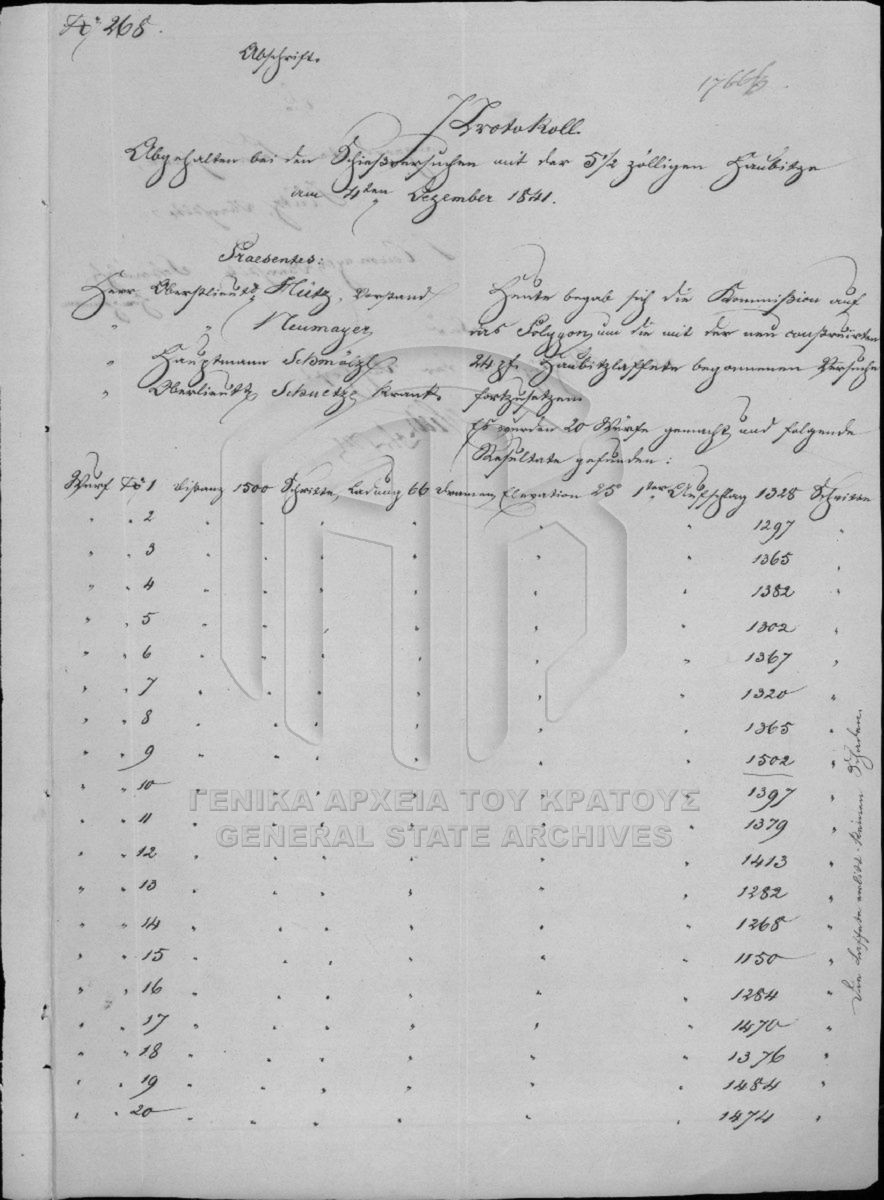 No 268.
Abschrift.
Protokoll.
Abgehalten bei den Schießversuchen mit der 5 1/2 zölligen Haubitze
am 4ten Dezember 1841.
Praesentes:
Herr Oberstlieut. Hütz, Vorstand
" " Neumayer
" Hauptmann Schmölzl
" Oberlieut. Schuetze krank.
Heute begab sich die Kommißion auf
das Polygon, um die mit der neu construirten
24 pf. Haubitzlaffete begonnenen Versuche
fortzusetzen.
Es wurden 20 Würfe gemacht und folgende
Resultate gefunden:
Wurf No 1 Distanz 1500 Schritte, Ladung 66 Dramen, Elevation 25° 1ter Aufschlag 1328 Schritte
" " 2 " " " " " " 1297 "
" " 3 " " " " " " 1365 "
" " 4 " " " " " " 1382 "
" " 5 " " " " " " 1302 "
" " 6 " " " " " " 1367 "
" " 7 " " " " " " 1320 "
" " 8 " " " " " " 1365 "
" " 9 " " " " " " 1502 "
" " 10 " " " " " " 1397 "
" " 11 " " " " " " 1379 "
" " 12 " " " " " " 1413 "
" " 13 " " " " " " 1282 "
" " 14 " " " " " " 1268 "
" " 15 " " " " " " 1150 "
" " 16 " " " " " " 1284 "
" " 17 " " " " " " 1470 "
" " 18 " " " " " " 1376 "
" " 19 " " " " " " 1484 "
" " 20 " " " " " " 1474 "
Die Laffete erlitt keinen Schaden.
ΓΕΝΙΚΑ ΑΡΧΕΙΑ ΤΟΥ ΚΡΑΤΟΥΣ
GENERAL STATE ARCHIVES